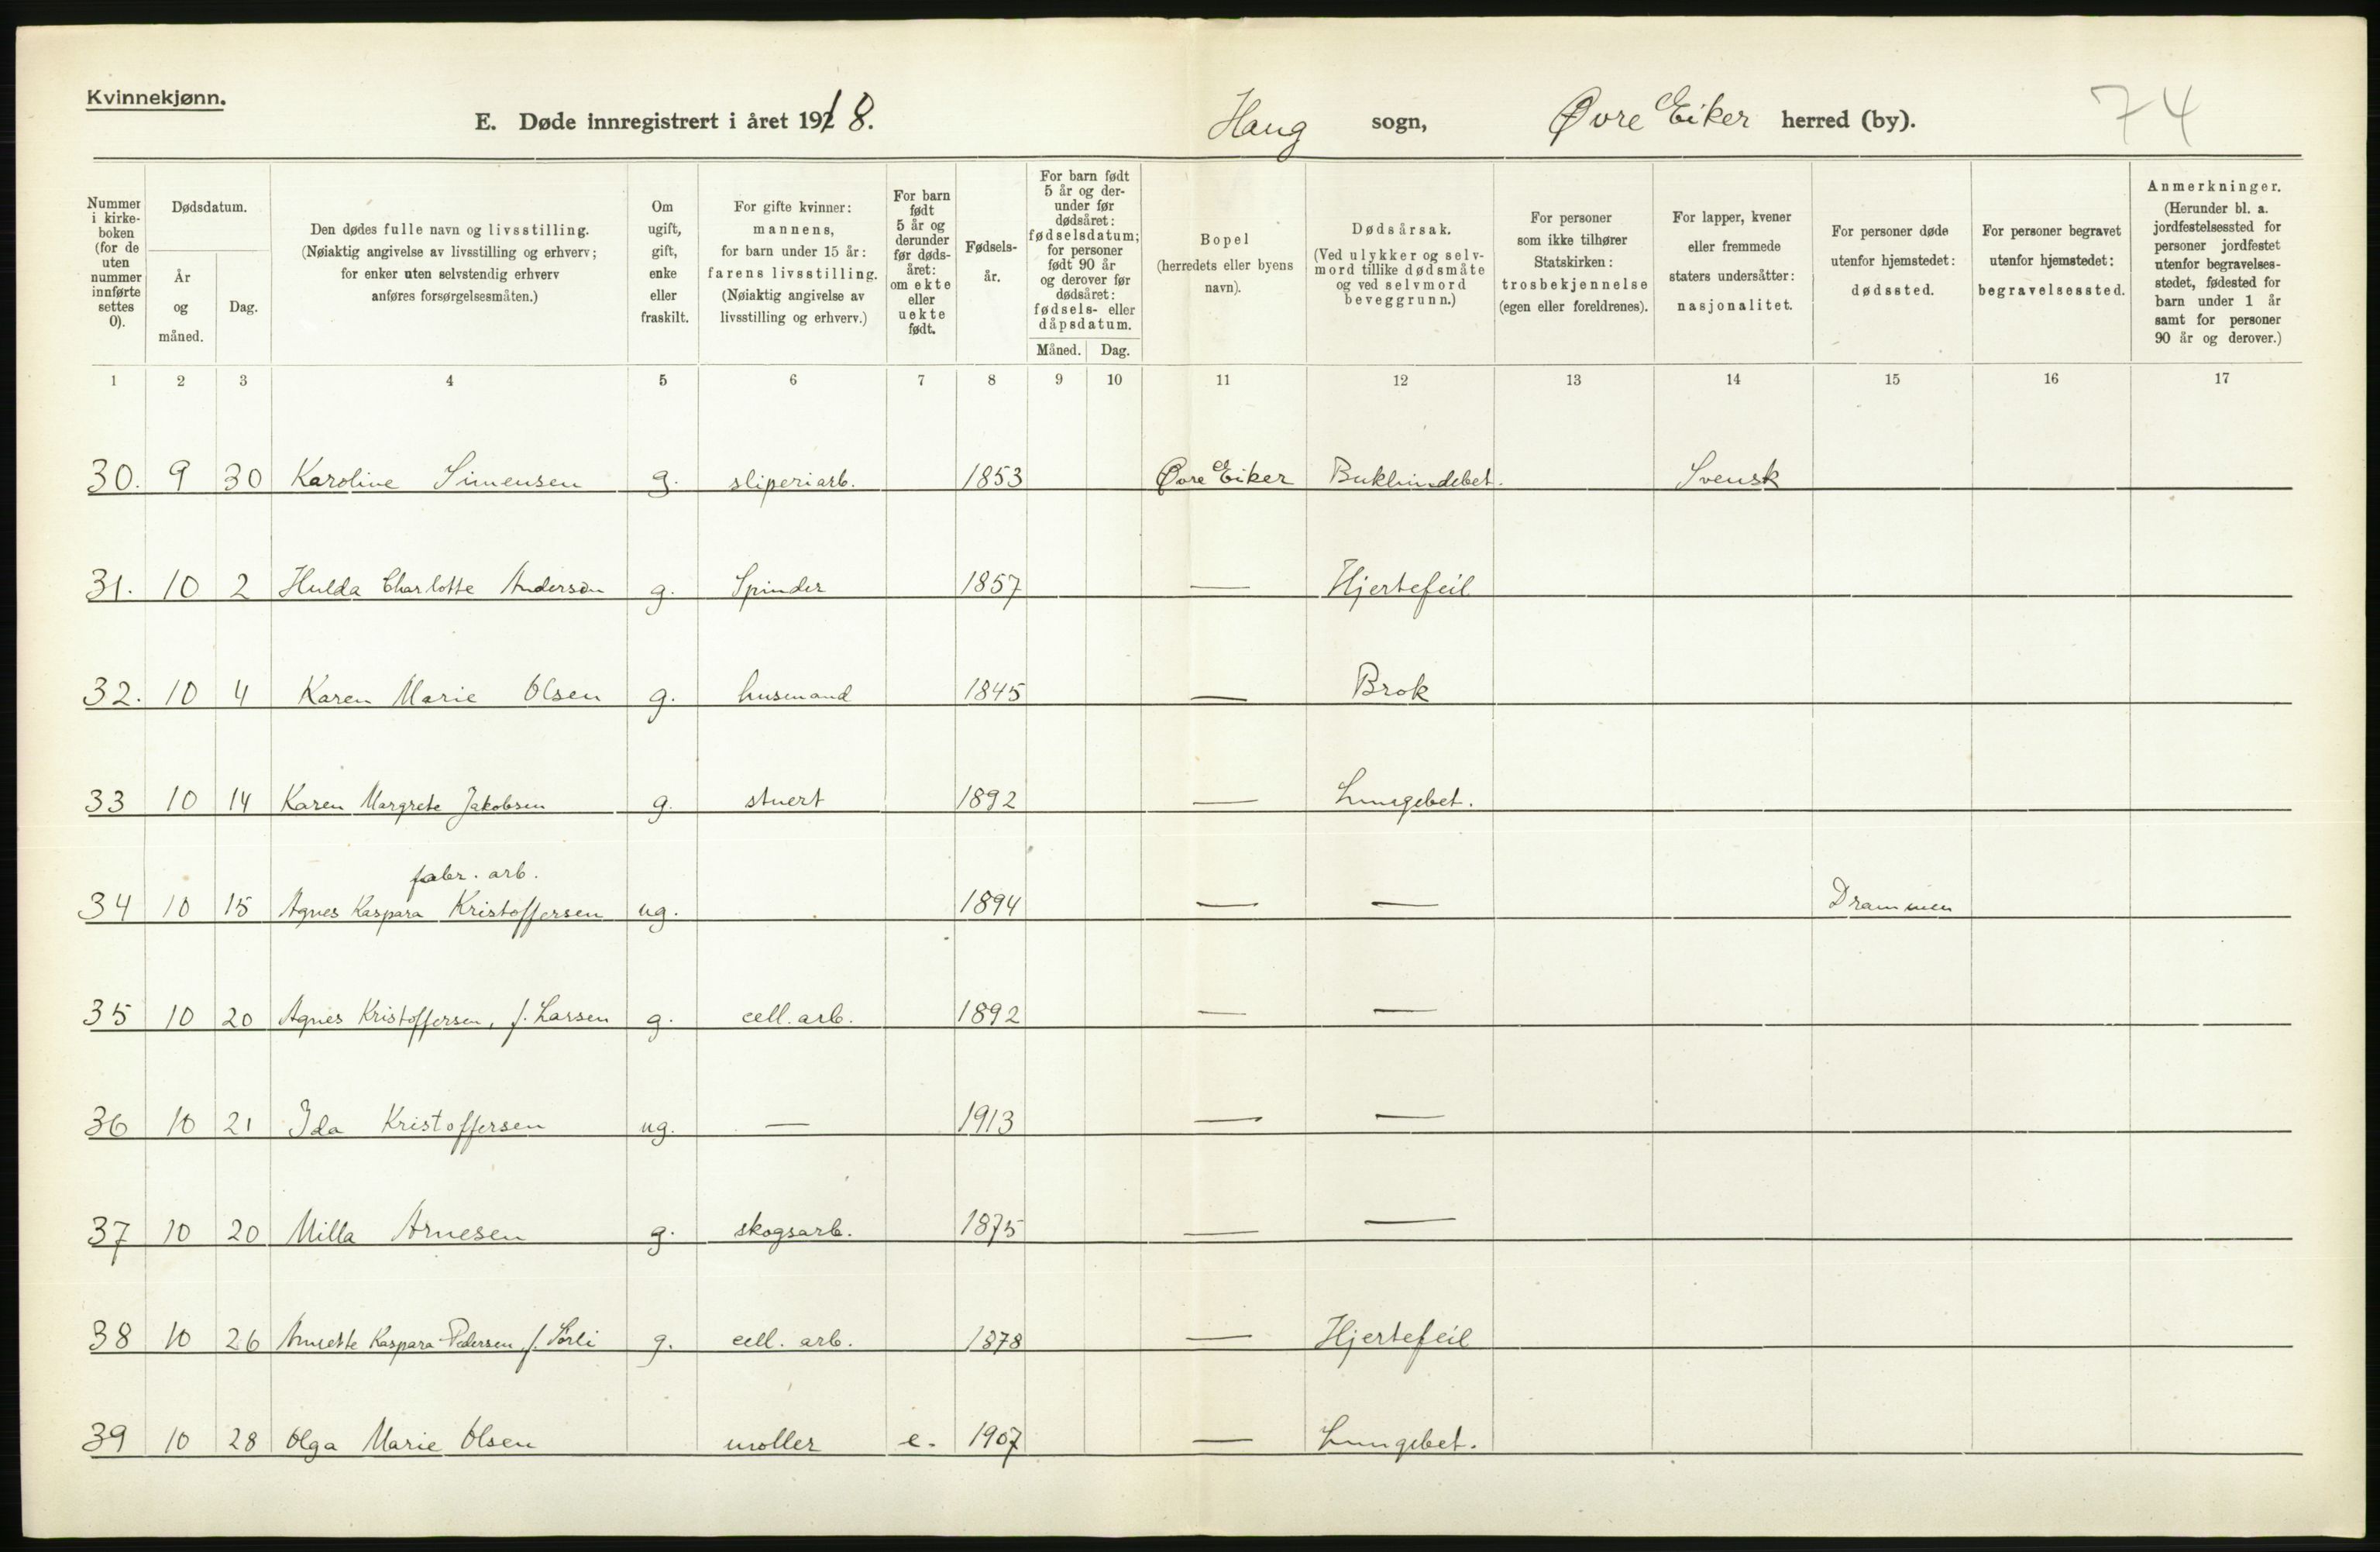 Kvinnekjønn.
E. Døde innregistrert i året 1918. Haug sogn, Øvre Eiker herred (by). 74
Nummer i kirke-boken (for de uten nummer innførte settes 0).
Dødsdatum.
År og måned.
Dag.
Den dødes fulle navn og livsstilling. (Nøiaktig angivelse av livsstilling og erhverv; for enker uten selvstendig erhverv anføres forsørgelsesmåten.)
Om ugift, gift, enke eller fraskilt.
For gifte kvinner: mannens, for barn under 15 år: farens livsstilling. (Nøiaktig angivelse av livsstilling og erhverv.)
For barn født 5 år og derunder før døds-året: om ekte eller uekte født.
Fødsels-år.
For barn født 5 år og der-under før dødsåret: fødselsdatum; for personer født 90 år og derover før dødsåret: fødsels- eller dåpsdatum.
Måned. Dag.
Bopel (herredets eller byens navn).
Dødsårsak. (Ved ulykker og selv-mord tillike dødsmåte og ved selvmord beveggrunn.)
For personer som ikke tilhører Statskirken: trosbekjennelse (egen eller foreldrenes).
For lapper, kvener eller fremmede staters undersåtter: nasjonalitet.
For personer døde utenfor hjemstedet: dødssted.
For personer begravet utenfor hjemstedet: begravelsessted.
Anmerkninger. (Herunder bl. a. jordfestelsessted for personer jordfestet utenfor begravelses-stedet, fødested for barn under 1 år samt for personer 90 år og derover.)
1 2 3 4 5 6 7 8 9 10 11 12 13 14 15 16 17
30. 9 30 Karoline Simensen g. sliperiarb. 1853 Øvre Eiker Bukhindebet. Svensk
31. 10 2 Hulda Charlotte Anderson g. Spinder 1857 — Hjertefeil
32. 10 4 Karen Marie Olsen g. husmand 1845 — Brok
33 10 14 Karen Margrete Jakobsen g. stuert 1892 — Lungebet.
fabr. arb.
34 10 15 Agnes Kaspara Kristoffersen ug. 1894 — — Drammen
35 10 20 Agnes Kristoffersen, f. Larsen g. cell. arb. 1892 — —
36 10 21 Ida Kristoffersen ug. — 1913 — —
37 10 20 Milla Arnesen g. skogsarb. 1875 — —
38 10 26 Annette Kaspara Pedersen, f. Sørli g. cell. arb. 1878 — Hjertefeil
39 10 28 Olga Marie Olsen møller e. 1907 — Lungebet.